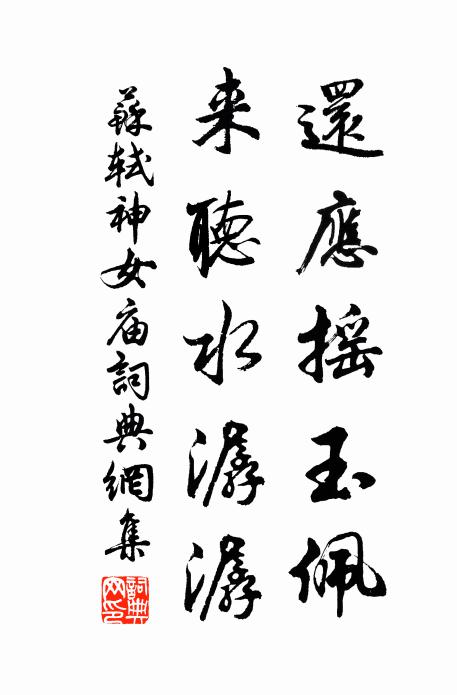 還應摇玉佩
来聽水潺潺
蘇軾神女庙詞典網集
詞典网印